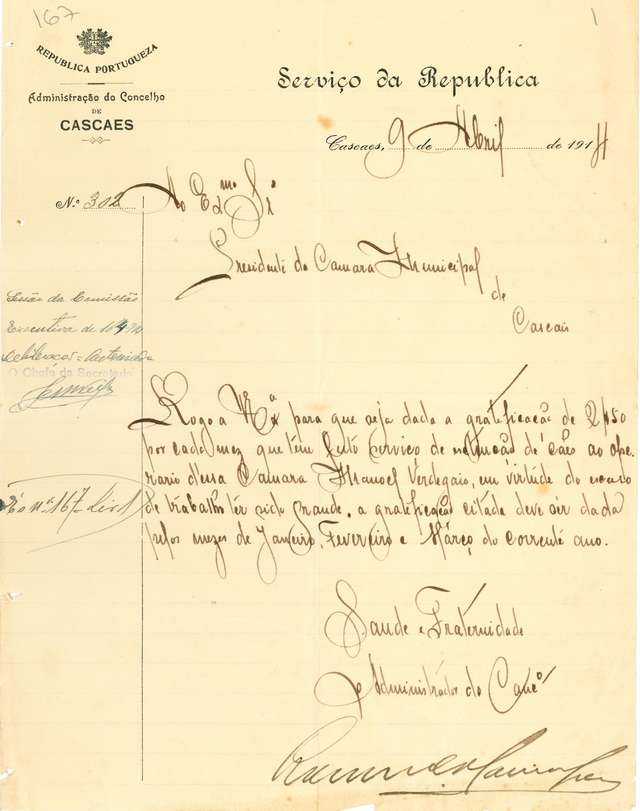 167
1
REPUBLICA PORTUGUEZA
Administração do Concelho
DE
CASCAES
Serviço da Republica
Cascaes, 9 de Abril de 1914
N.º 302
Ao Exmo Sr
Presidente da Camara Municipal
de
Cascais
Sessão da Comissão
Executiva de
O Chefe da Secretaria
Rogo a V. Exª para que seja dada a gratificação de 2$50
por cada mez que têm feito serviço de de cães ao ope-
rario d'essa Camara Manoel Verdegaio, em virtude do
de trabalho têr sido grande. a gratificação citada deve sêr dada
pelos mezes de Janeiro, Fevereiro e Março do corrente ano.
nº 167 Liv 1
Saude e Fraternidade
O Administrador do